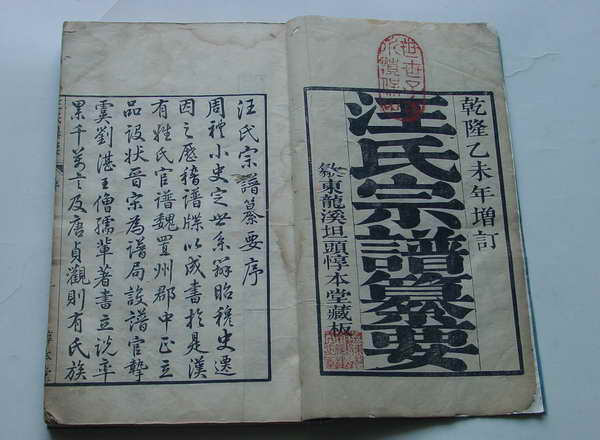 乾隆乙未年增訂
汪氏宗譜纂要
東龍溪坦頭惇本堂藏板
汪氏宗譜纂要序
周禮小史定世系辨昭穆史遷
因之歷稽譜牒以成書於是漢
有姓氏官譜魏置州郡中正立
品設狀晉宋為譜局設譜官摯
虞劉湛王僧孺輩著書立說率
累千萬言及唐貞觀則有氏族